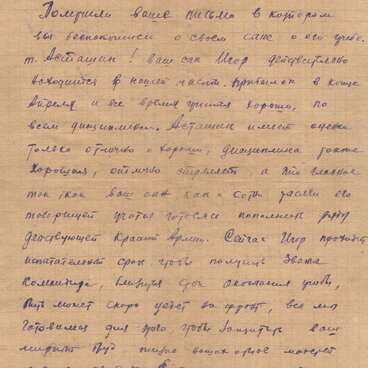 Получили ваше письмо в котором
вы беспокоитесь о своем сыне о его учебе.
т. Асташин! ваш сын Игорь действительно
находится в нашей части. Прибыл он в конце
Апреля и все время учится хорошо, по
всем дисциплинам. Асташин имеет оценки
только отлично и хорошо, дисциплина тоже
хорошая, отлично стреляет, а это главное
так как ваш сын как и сотни тысяч его
товарищей учатся готовясь пополнить ряды
действующей Красной Армии. Сейчас Игорь проходит
испытательный срок, чтобы получить звание
командира, близится срок окончания учебы,
быть может скоро уедет на фронт, все мы
готовимся для этого, чтобы защитить ваш
мирный труд